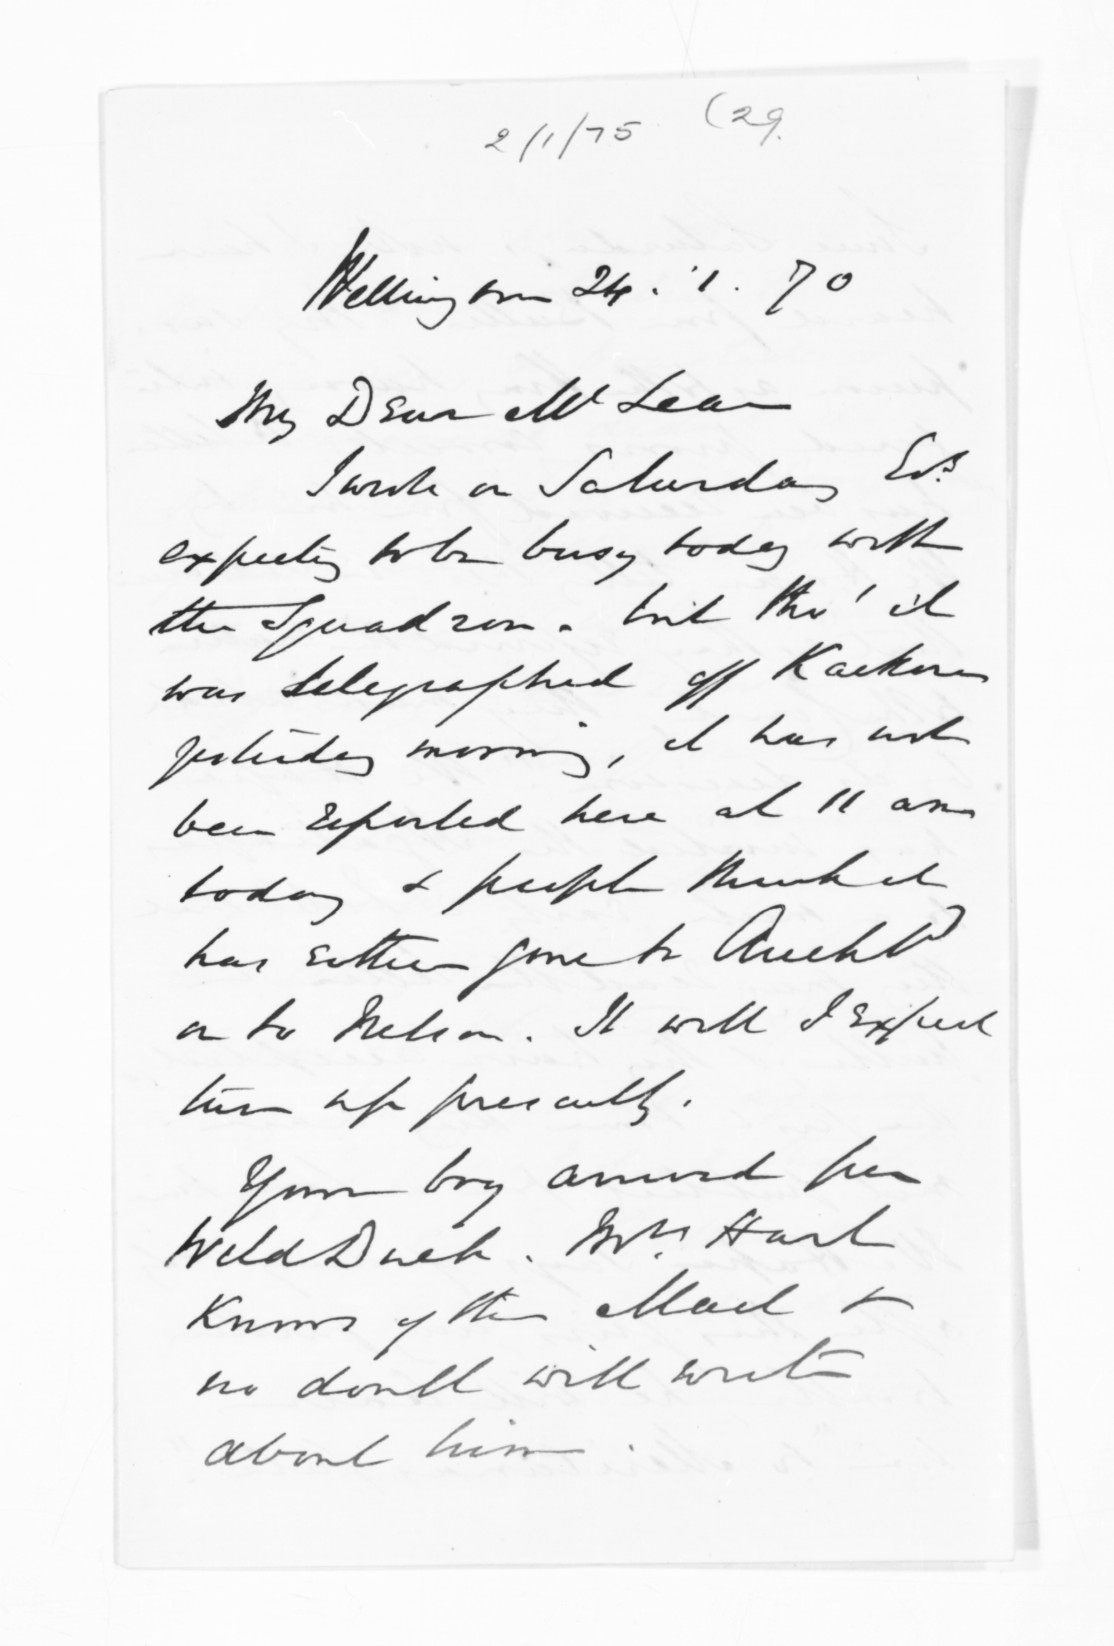 2/1/75 (29.
Wellington 24. 1. 70
My Dear McLean
I wrote on Saturday Evg
expecting to be busy today with
the Squadron. but tho' it
was telegraphed off Kaikoura
yesterday morning, it has not
been reported here at 11 am
today & people think it
has either gone to Auckld
or to Nelson. It will I expect
turn up presently.
Your boy arrived per
Wild Duck. Mrs Hart
knows of the Mail &
no doubt will write
about him.